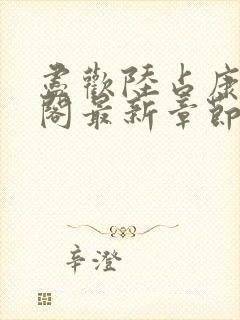 尽歡陸占康
閣最新章節
辛澄